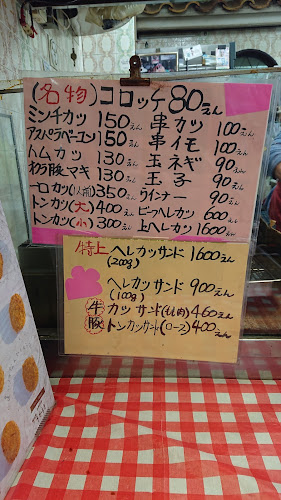 (名物)コロッケ80えん
ミンチカツ 150えん
アスパラベーコン 150えん
ハムカツ 130えん
わり豚マキ 130えん
一口カツ(人前)350えん
トンカツ(大)400えん
トンカツ(小)300えん
串カツ 100えん
串イモ 100えん
玉ネギ 90えん
玉子 90えん
ウインナー 90えん
ビーフヘレカツ 600えん
上ヘレカツ 1600えん
特上 ヘレカツサンド 1600えん
(200g)
ヘレカツサンド 900えん
(100g)
牛 カツサンド(モモ肉)460えん
豚 トンカツサンド(ロース)400えん